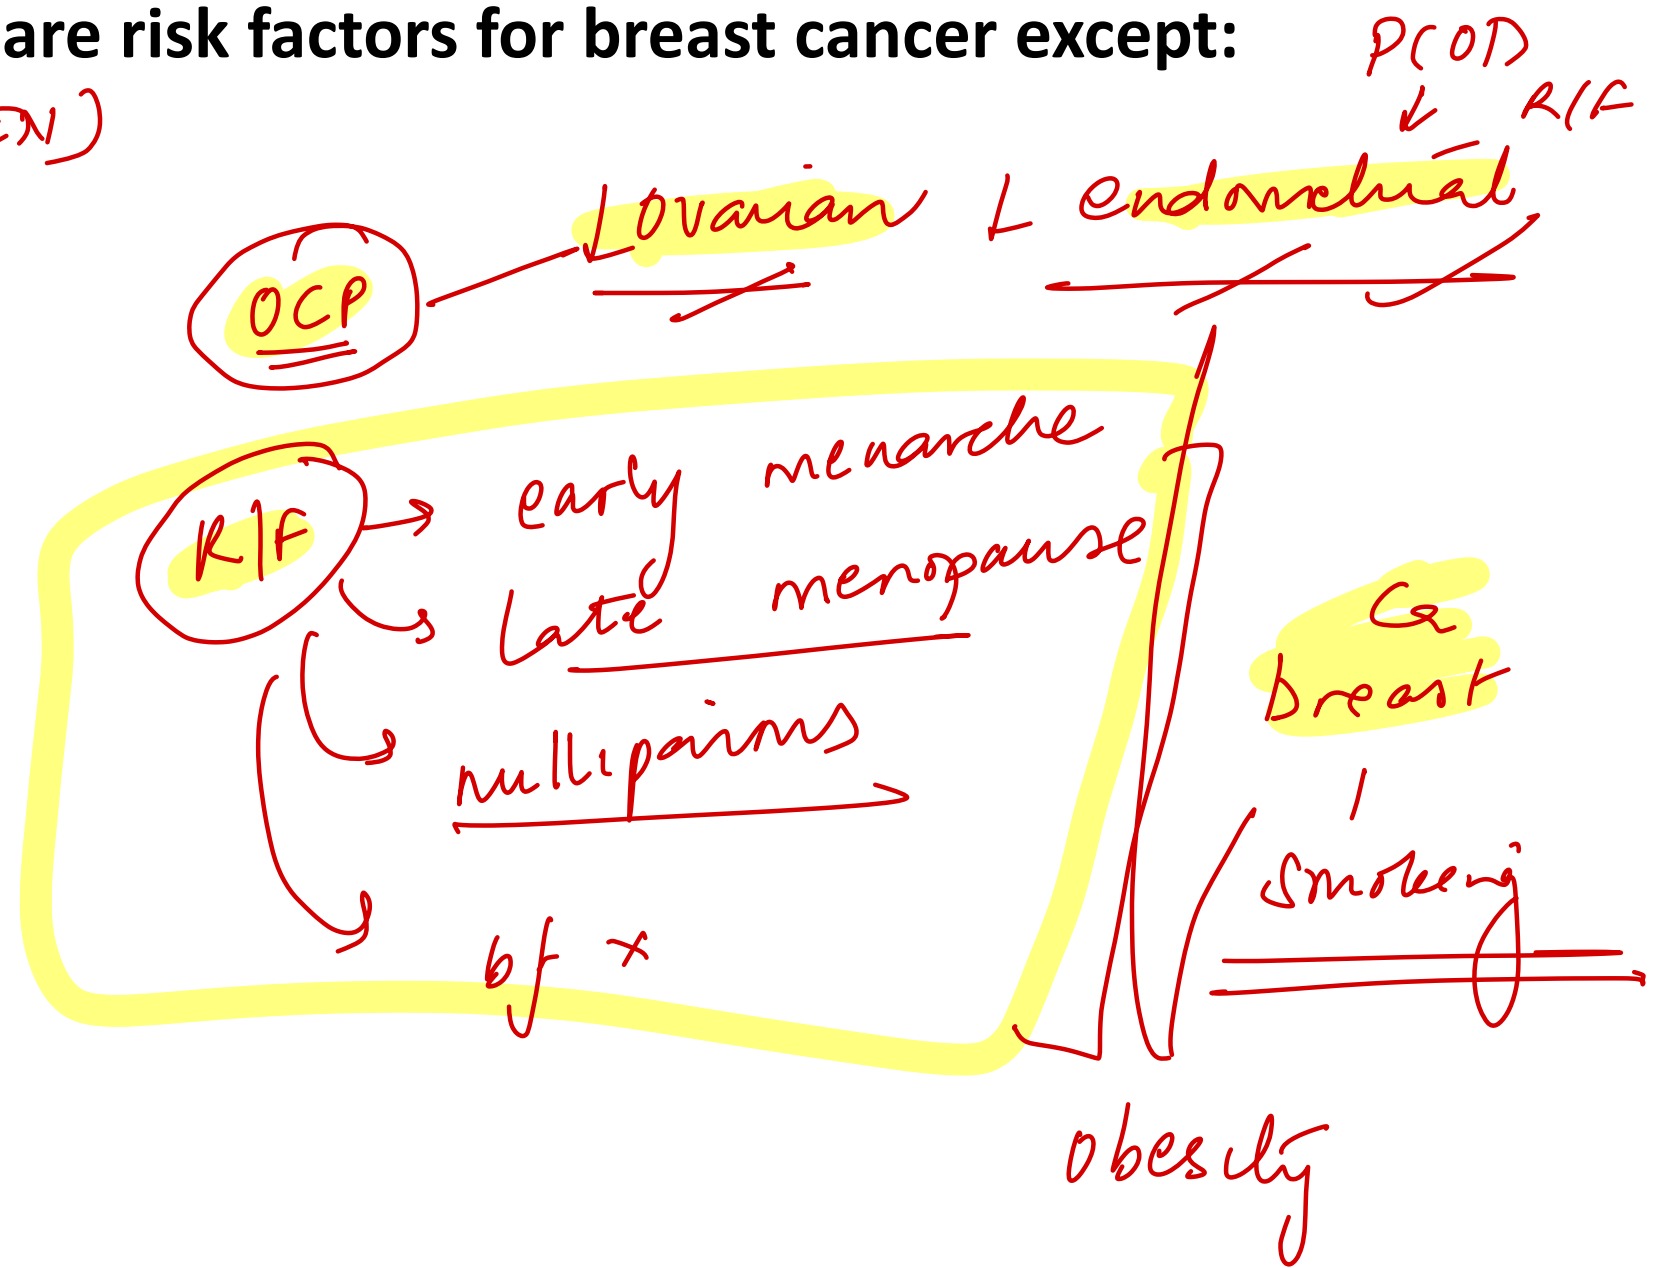 are risk factors for breast cancer except:
PCOD
EN)
R/F
↓ ovarian ↓ endometrial
OCP
R/F → early menarche
late menopause
nulliparous
bf ×
Ca
breast
smoking
obesity